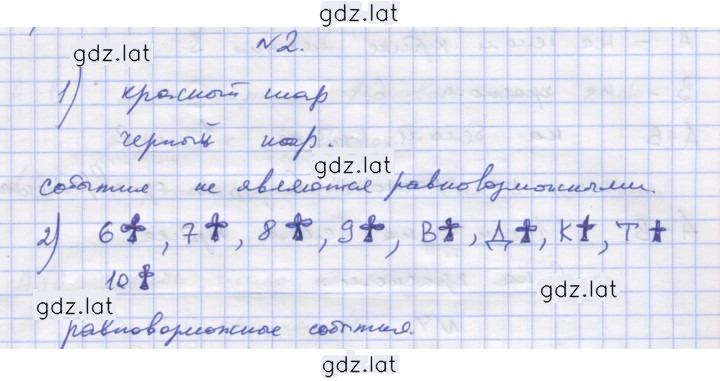 gdz.lat
№2.
gdz.lat
1) красный шар
черный шар.
gdz.lat
события не являются равновозможными.
2) 6♣, 7♣, 8♣, 9♣, В♣, Д♣, К♣, Т♣
10♣
gdz.lat
gdz.lat
равновозможные события.
gdz.lat